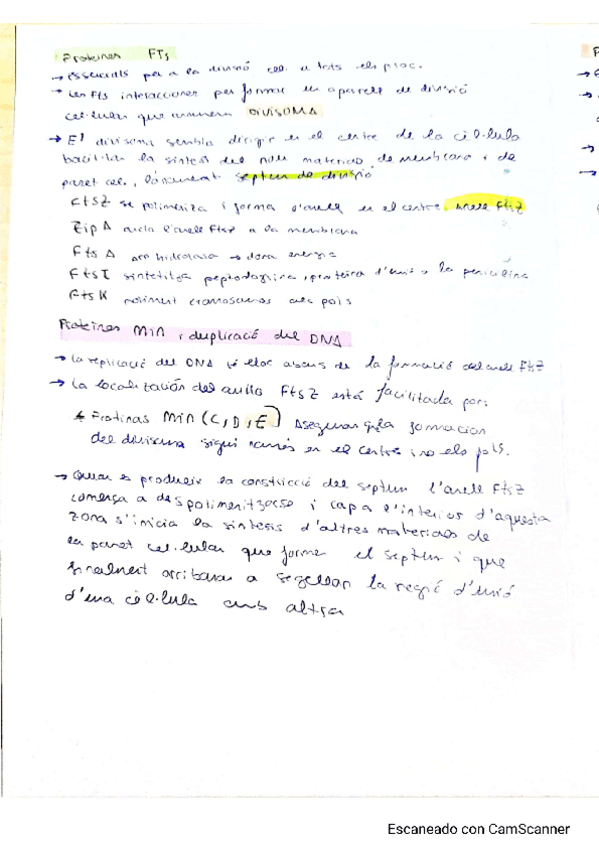 Proteines FTs
→ essencials per a la divisió cel. a tots els proc.
→ Les Fts interaccionen per formar un aparell de divisió
cel·lular que anomenem DIVISOMA
→ El divisoma sembla dirigir en el centre de la cèl·lula
la síntesi del nou material de membrana i de
paret cel, septum de divisió
FtsZ se polimeriza i forma s'anell en el centre. Anell FtsZ
Zip A ancla l'anell FtsZ a la membrana
Fts A hidrolasa → dona energia
Fts I sintetitza peptidoglicà, proteina d'unió a la penicilina
Fts K cromosomas als pols
Proteines Min i duplicació del DNA
→ La replicació del DNA té lloc abans de la formació del anell FtsZ
→ La localización del anillo FtsZ está facilitada por:
Protinas Min (C, D, E) Aseguran q la formacion
del divisoma sigui només en el centre i no els pols.
→ Quan es produeix la constricció del septum l'anell FtsZ
comença a despolimeritzarse i capa l'interior d'aquesta
zona s'inicia la síntesis d'altres materials de
la paret cel·lular que formen el septum i que
finalment arribaran a segellar la regió d'unió
d'una cèl·lula amb altra
Escaneado con CamScanner